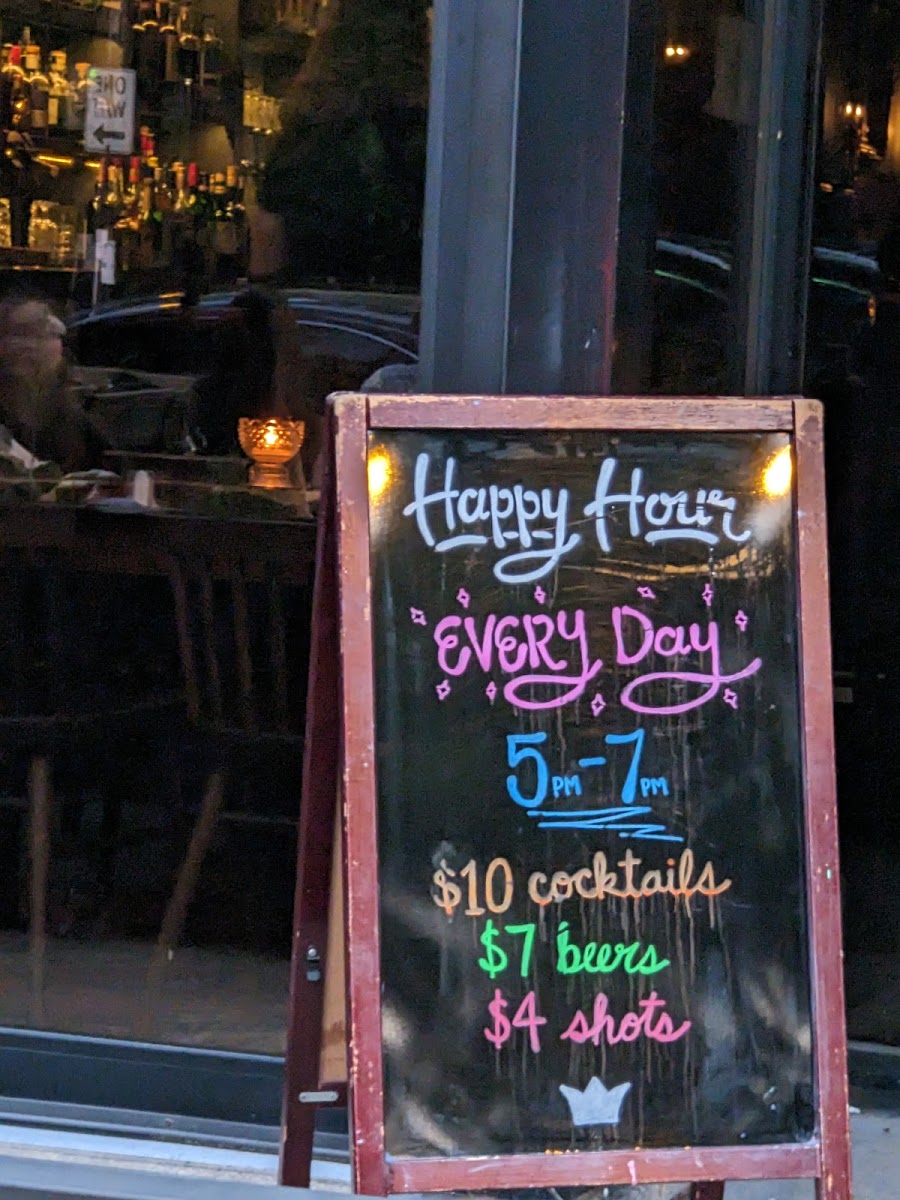 ONE
WAY
Happy Hour
EVERY Day
5PM-7PM
$10 cocktails
$7 beers
$4 shots